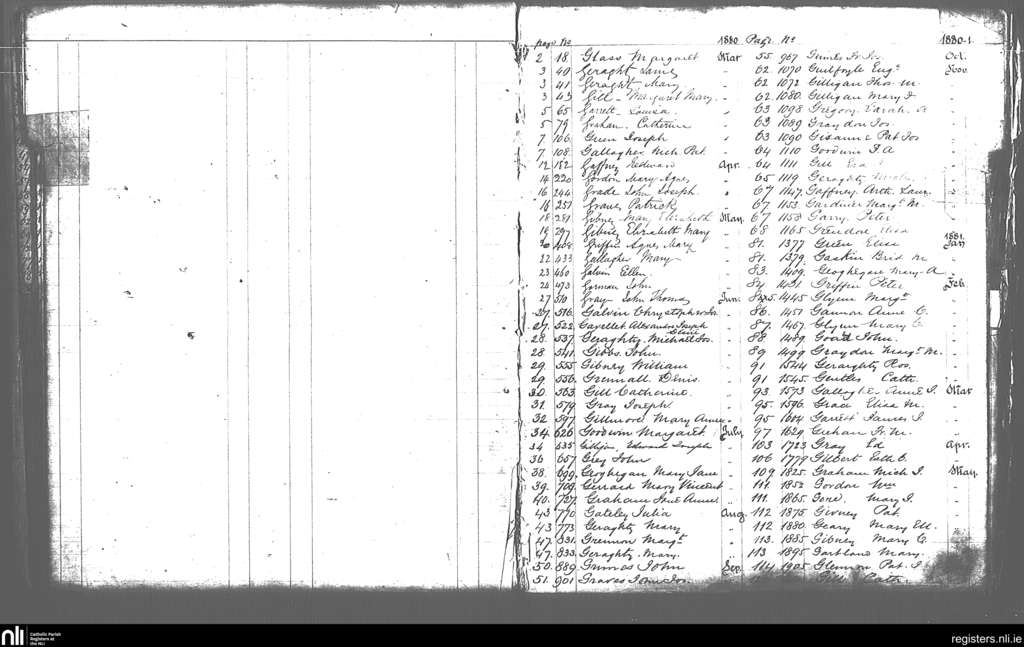 page No 1880
2 18 Glass Margaret Mar
3 40 Geraght James "
3 41 Geraght Mary "
3 43 Gill - Margaret Mary "
5 65 Garrett Louisa "
5 79 Graham Catherine
7 106 Green Joseph "
7 108 Gallagher Mich Pat "
12 182 Gaffney Edward Apr.
14 220 Gordon Mary Agnes "
16 244 Grade John Joseph "
16 251 Graves Patrick "
18 281 Gibney Mary Elizabeth May
19 297 Gibney Elizabeth Mary "
408 Griffin Agnes Mary "
22 433 Gallagher Mary "
23 460 Galvin Ellen "
24 473 Gorman John "
27 510 Gray John Thomas Jun.
27. 516. Galvin Chrystopher Jos
27. 522. Gavellet Alexander Joseph
28. 537. Geraghty. Michael Jos.
28 541. Gibbs. John. "
29. 555. Gibney William "
29. 556. Grennall Denis. "
30. 563. Gill Catherine. "
31. 579 Gray Joseph. "
32. 597. Gillmore Mary Anne "
34. 626 Goodwin Margaret July
34 635 Edward Joseph "
36 657 Grey John "
38. 699. Geoghegan Mary Jane "
39. 709. Gerrard Mary Vincent "
40. 727. Graham Anne "
43 770 Gateley Julia Aug
43 773 Geraghty Mary "
47. 831. Grennon Margt "
47. 833. Geraghty. Mary. "
50. 889. John Sep.
51. 901 Graves John Jos.
Page No 1880-1.
55. 967 Fr Jos. Oct.
62. 1070 Guilfoyle Eugs Nov.
62 1072 Gilligan Thos. M. "
62. 1080. Gilligan Mary "
63 1098 Gregory Sarah "
63 1089 Graydon Jos. "
63 1090 Pat Jos "
64 1110 Goodwin J. A "
64 1111 Gill "
65 1119 Geraghty "
67 1147. Gaffney. Arth. Laur. "
67 1153. Gardiner Margt M. "
67 1158 Garry. Peter "
68 1165 "
81. 1377 Green Elisa 1881. Jan
81. 1379. Gaskin Brid. M "
83. 1409. Geoghegan Mary A "
84 1431 Griffin Peter Feb.
1445 Glynn Margt "
86. 1451 Gannon Anne C. "
87. 1467. Glynn Mary C. "
88 1489. Goad John. "
89 1499 Graydon Margt M. "
91 1544 Geraughty Ros. "
91 1545. Gentles Cath. "
93. 1573 Annie J. Mar
95. 1596. Grace Eliza M. "
95 1604 Garrett James J. "
97 1629 Geehan Fr. M. "
103 1723 Gray Ed Apr.
106 1779 Gilbert C. "
109 1825. Graham Mich J. May.
111. 1853 Gordon Wm "
111. 1865. Gore. Mary J. "
112 1875 Givney Pat. "
112 1880. Geary Mary Ell. "
113. 1885 Gibney Mary C. "
113 1895 Gartland Mary. "
114 1905 Glennon Pat. J.
Gill Cath.
nli Catholic Parish
Registers at
the NLI
registers.nli.ie